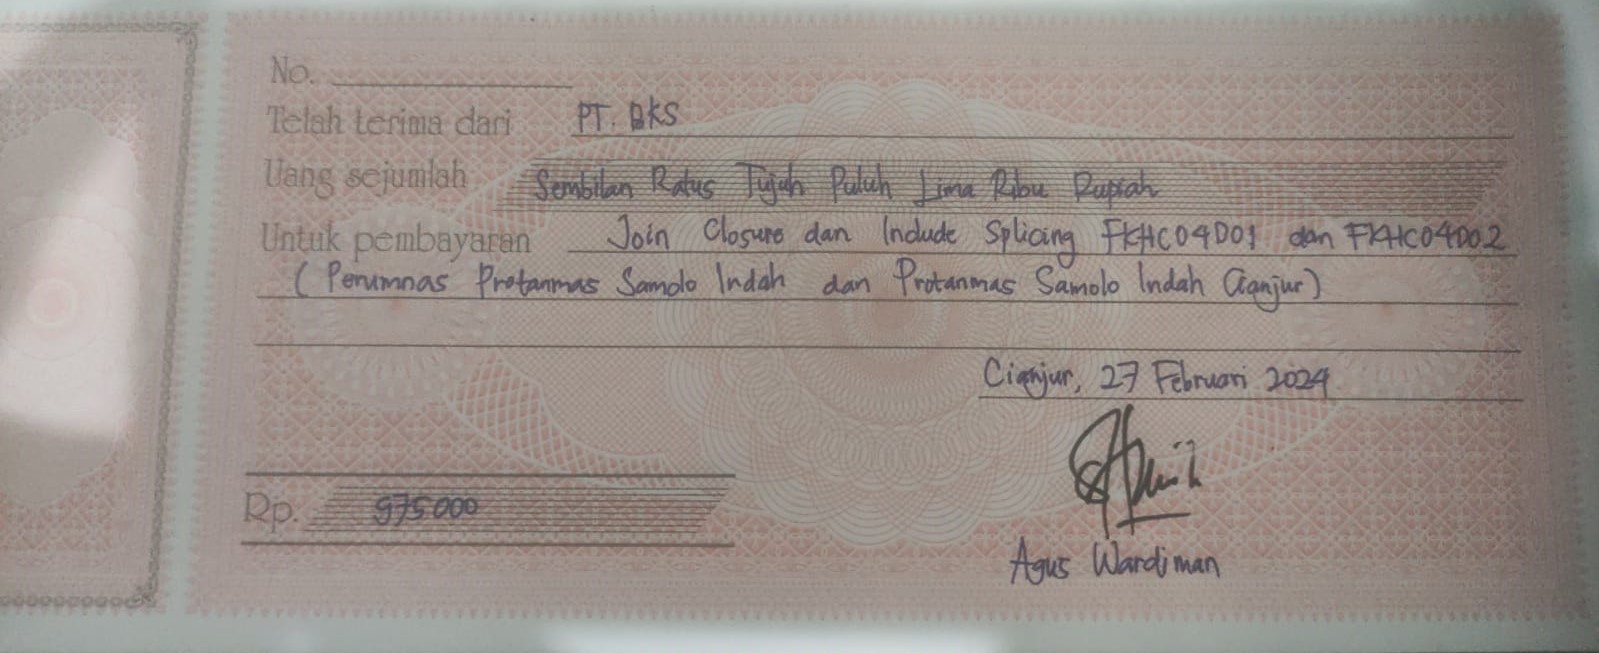 No.
Telah terima dari PT. BKS
Uang sejumlah Sembilan Ratus Tujuh Puluh Lima Ribu Rupiah
Untuk pembayaran Join Closure dan Include Splicing FKHC04D01 dan FKHC04D02
( Perumnas Protanmas Samolo Indah dan Protanmas Samolo Indah Cianjur )
Cianjur, 27 Februari 2024
Rp. 975.000
Agus Wardiman